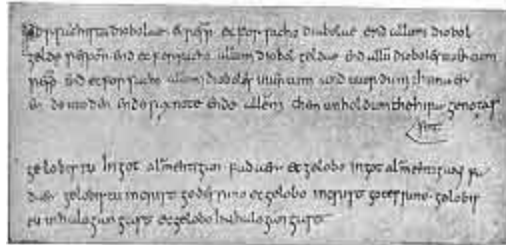 forsachistu diobolae & resp& ec forsacho diabolae end allum diobol
gelde respon& end ec forsacho allum diobolgeldae end allum dioboles uuercum
resp& end ec forsacho allum dioboles uuercum and uuordum thunaer
ende uuoden ende saxnote ende allem them unholdum the hira genotas
sint
gelobistu in got alamehtigan fadaer ec gelobo in got alamehtigan fa
daer gelobistu in crist godes suno ec gelobo in crist gotes suno gelobis
tu in halogan gast ec gelobo in halogan gast